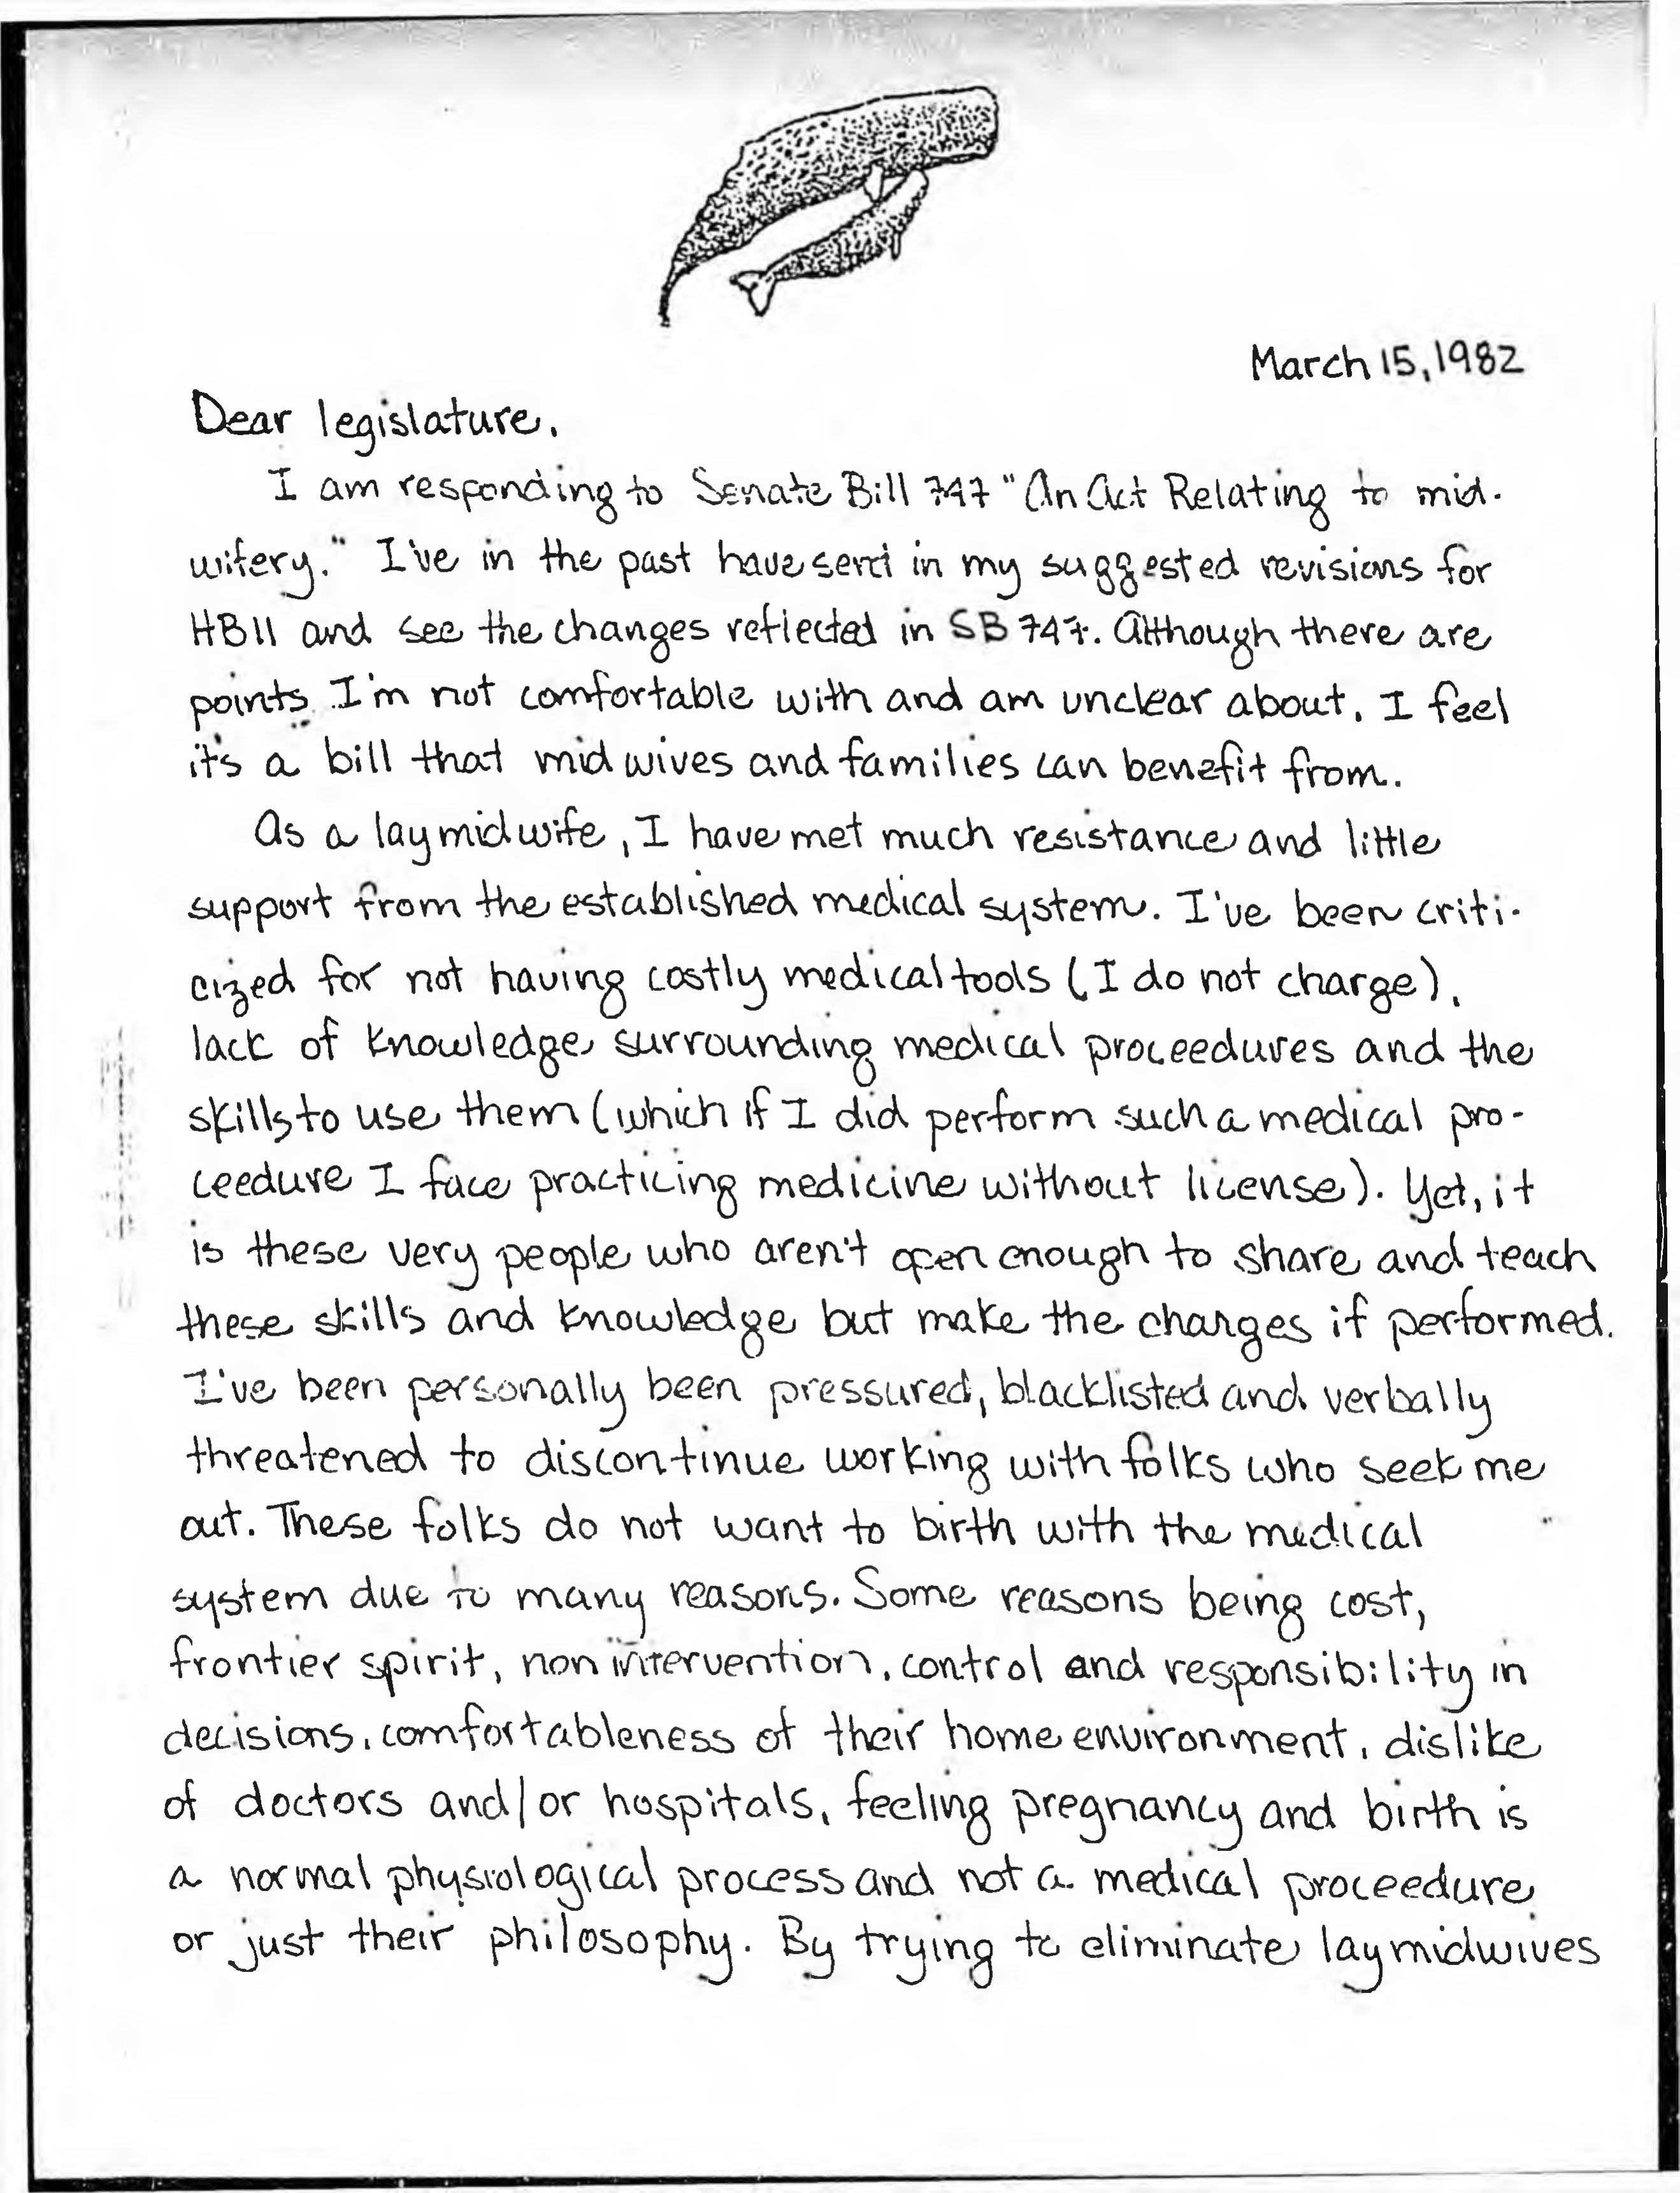 March 15, 1982
Dear legislature,
I am responding to Senate Bill 747 "An Act Relating to mid-
wifery." I've in the past have send in my suggested revisions for
HB11 and see the changes reflected in SB 747. Although there are
points I'm not comfortable with and am unclear about, I feel
it's a bill that midwives and families can benefit from.
As a lay midwife, I have met much resistance and little
support from the established medical system. I've been criti-
cized for not having costly medical tools (I do not charge),
lack of knowledge surrounding medical proceedures and the
skills to use them (which if I did perform such a medical pro-
ceedure I face practicing medicine without license). Yet, it
is these very people who aren't open enough to share and teach
these skills and knowledge but make the charges if performed.
I've been personally been pressured, blacklisted and verbally
threatened to discontinue working with folks who seek me
out. These folks do not want to birth with the medical
system due to many reasons. Some reasons being cost,
frontier spirit, non intervention, control and responsibility in
decisions, comfortableness of their home environment, dislike
of doctors and/or hospitals, feeling pregnancy and birth is
a normal physiological process and not a medical proceedure
or just their philosophy. By trying to eliminate lay midwives